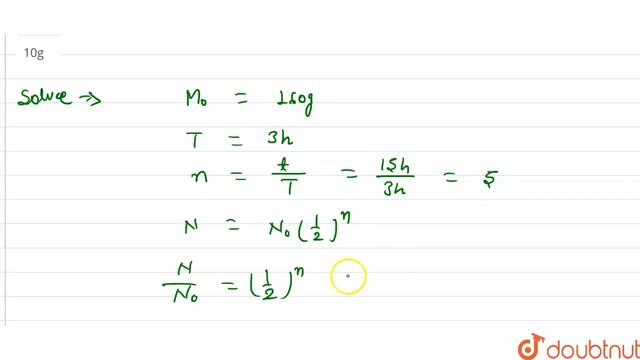 10g
Solve ⇒ M₀ = 160g
T = 3h
n = t/T = 15h/3h = 5
N = N₀(1/2)ⁿ
N/N₀ = (1/2)ⁿ
doubtnut